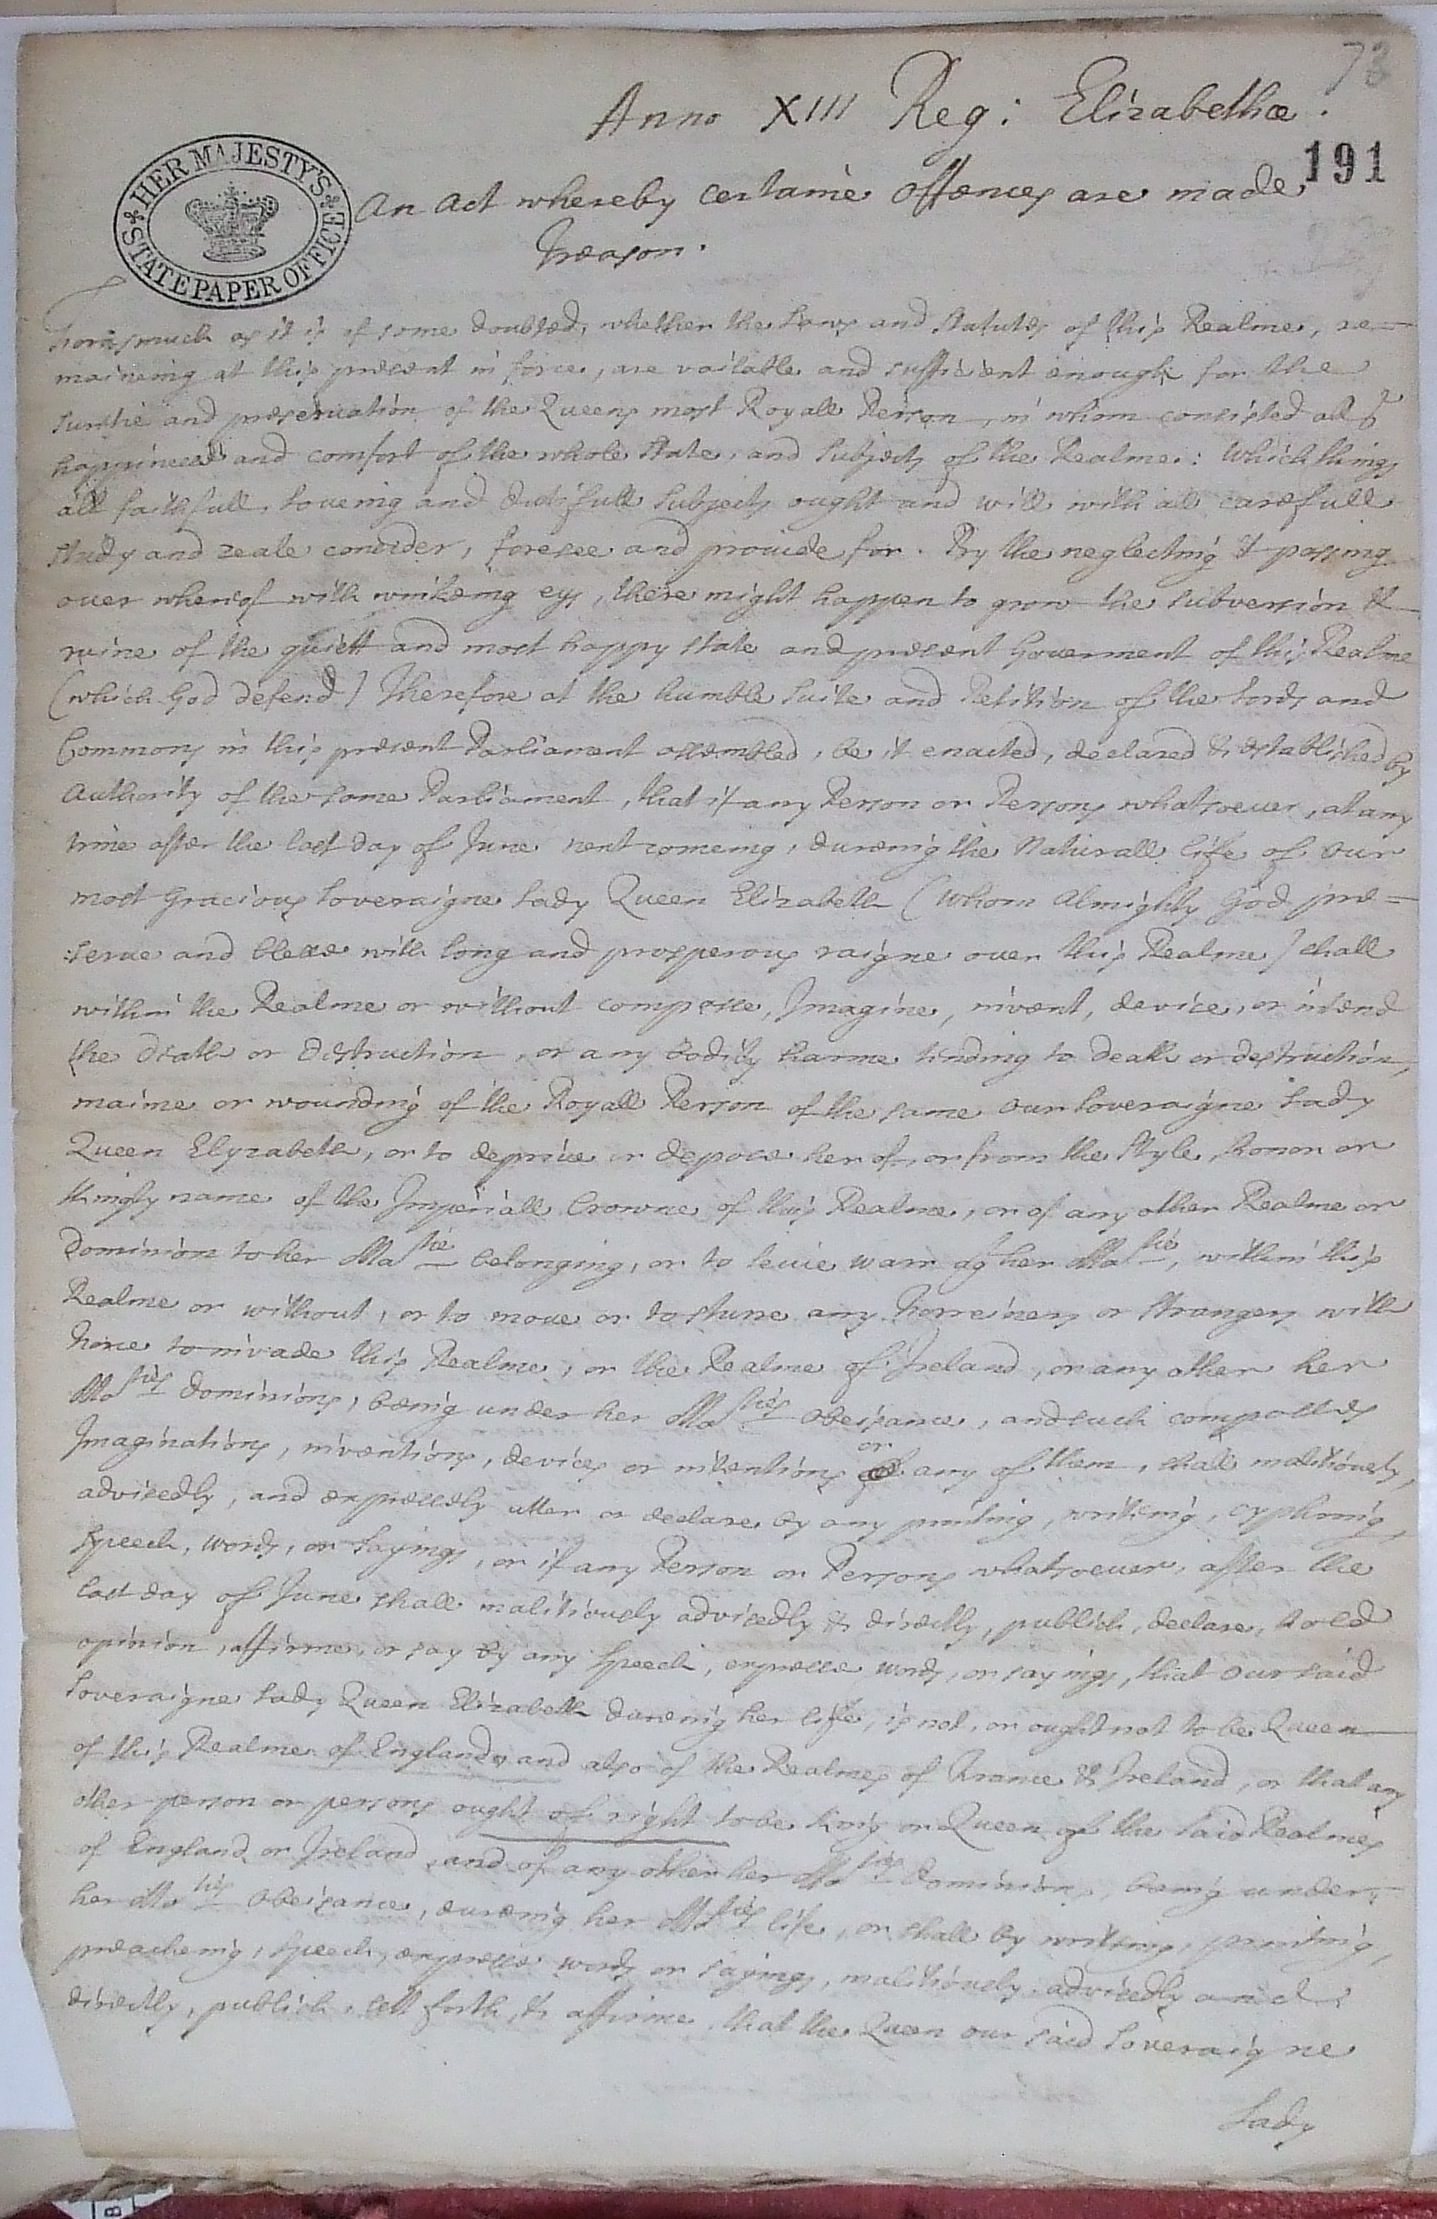 73
Anno XIII Reg: Elizabethæ.
191
HER MAJESTY'S STATE PAPER OFFICE
An Act whereby certaine offences are made
Treason.
Forasmuch as it is of some doubted, whether the Laws and Statutes of this Realme, re=
maineing at this present in force, are vailable and sufficient enough for the
suretie and preservation of the Queens most Royall Person, in whom consisted all ye
happiness and comfort of the whole State, and Subjects of the Realme: which things
all faithfull, loveing and dutifull subjects ought and will with all carefull
study and zeale consider, foresee and provide for. By the neglecting & passing
over whereof with winkeing eys, there might happen to grow the subversion &
ruine of the quiett and most happy state and present Goverment of this Realme
(which God defend) Therefore at the humble suite and Petition of the Lords and
Commons in this present Parliament assembled, be it enacted, declared & established by
Authority of the same Parliament, that if any Person or Persons whatsoever, at any
time after the last day of June next comeing, dureing the Naturall life of our
most Gracious Soveraigne Lady Queen Elizabeth (whom Almighty God pre=
:serve and blesse with long and prosperous raigne over this Realme) shall
within the Realme or without compasse, Imagine, invent, device, or intend
the Death or Distruction, or any bodily harme tending to death or destruction,
maime or wounding of the Royall Person of the same our Soveraigne Lady
Queen Elyzabeth, or to deprive or depose her of, or from the Style, honor or
Kingly name of the Imperiall Crowne of this Realme, or of any other Realme or
Dominion to her Matie belonging, or to levie warr ag her Matie, within this
Realme or without, or to move or to sturre any Forreiners or strangers with
Force to invade this Realme, or the Realme of Ireland, or any other her
Maties Dominions, being under her Maties obeisance, and such compasses
Imaginations, inventions, devices or intentions or any of them, shall malitiously,
advisedly, and expressely utter or declare by any printing, writeing, cyphring,
speech, words, or sayings, or if any Person or Persons whatsoever, after the
last day of June shall malitiously advisedly & directly, publish, declare, hold
opinion, affirme, or say by any speech, expresse words, or sayings, that our said
Soveraigne Lady Queen Elizabeth dureing her life, is not, or ought not to be Queen
of this Realme of England, and also of the Realmes of France & Ireland, or that any
other person or persons ought of right to be King or Queen of the said Realmes
of England or Ireland, and of any other her Maties Dominions, being under
her Maties obeisance, dureing her Maties life, or shall by writeing, printing,
preacheing, speech, expresse words or sayings, malitiously, advisedly and
directly, publish, sett forth, & affirme, that the Queen our said Soveraigne
Lady